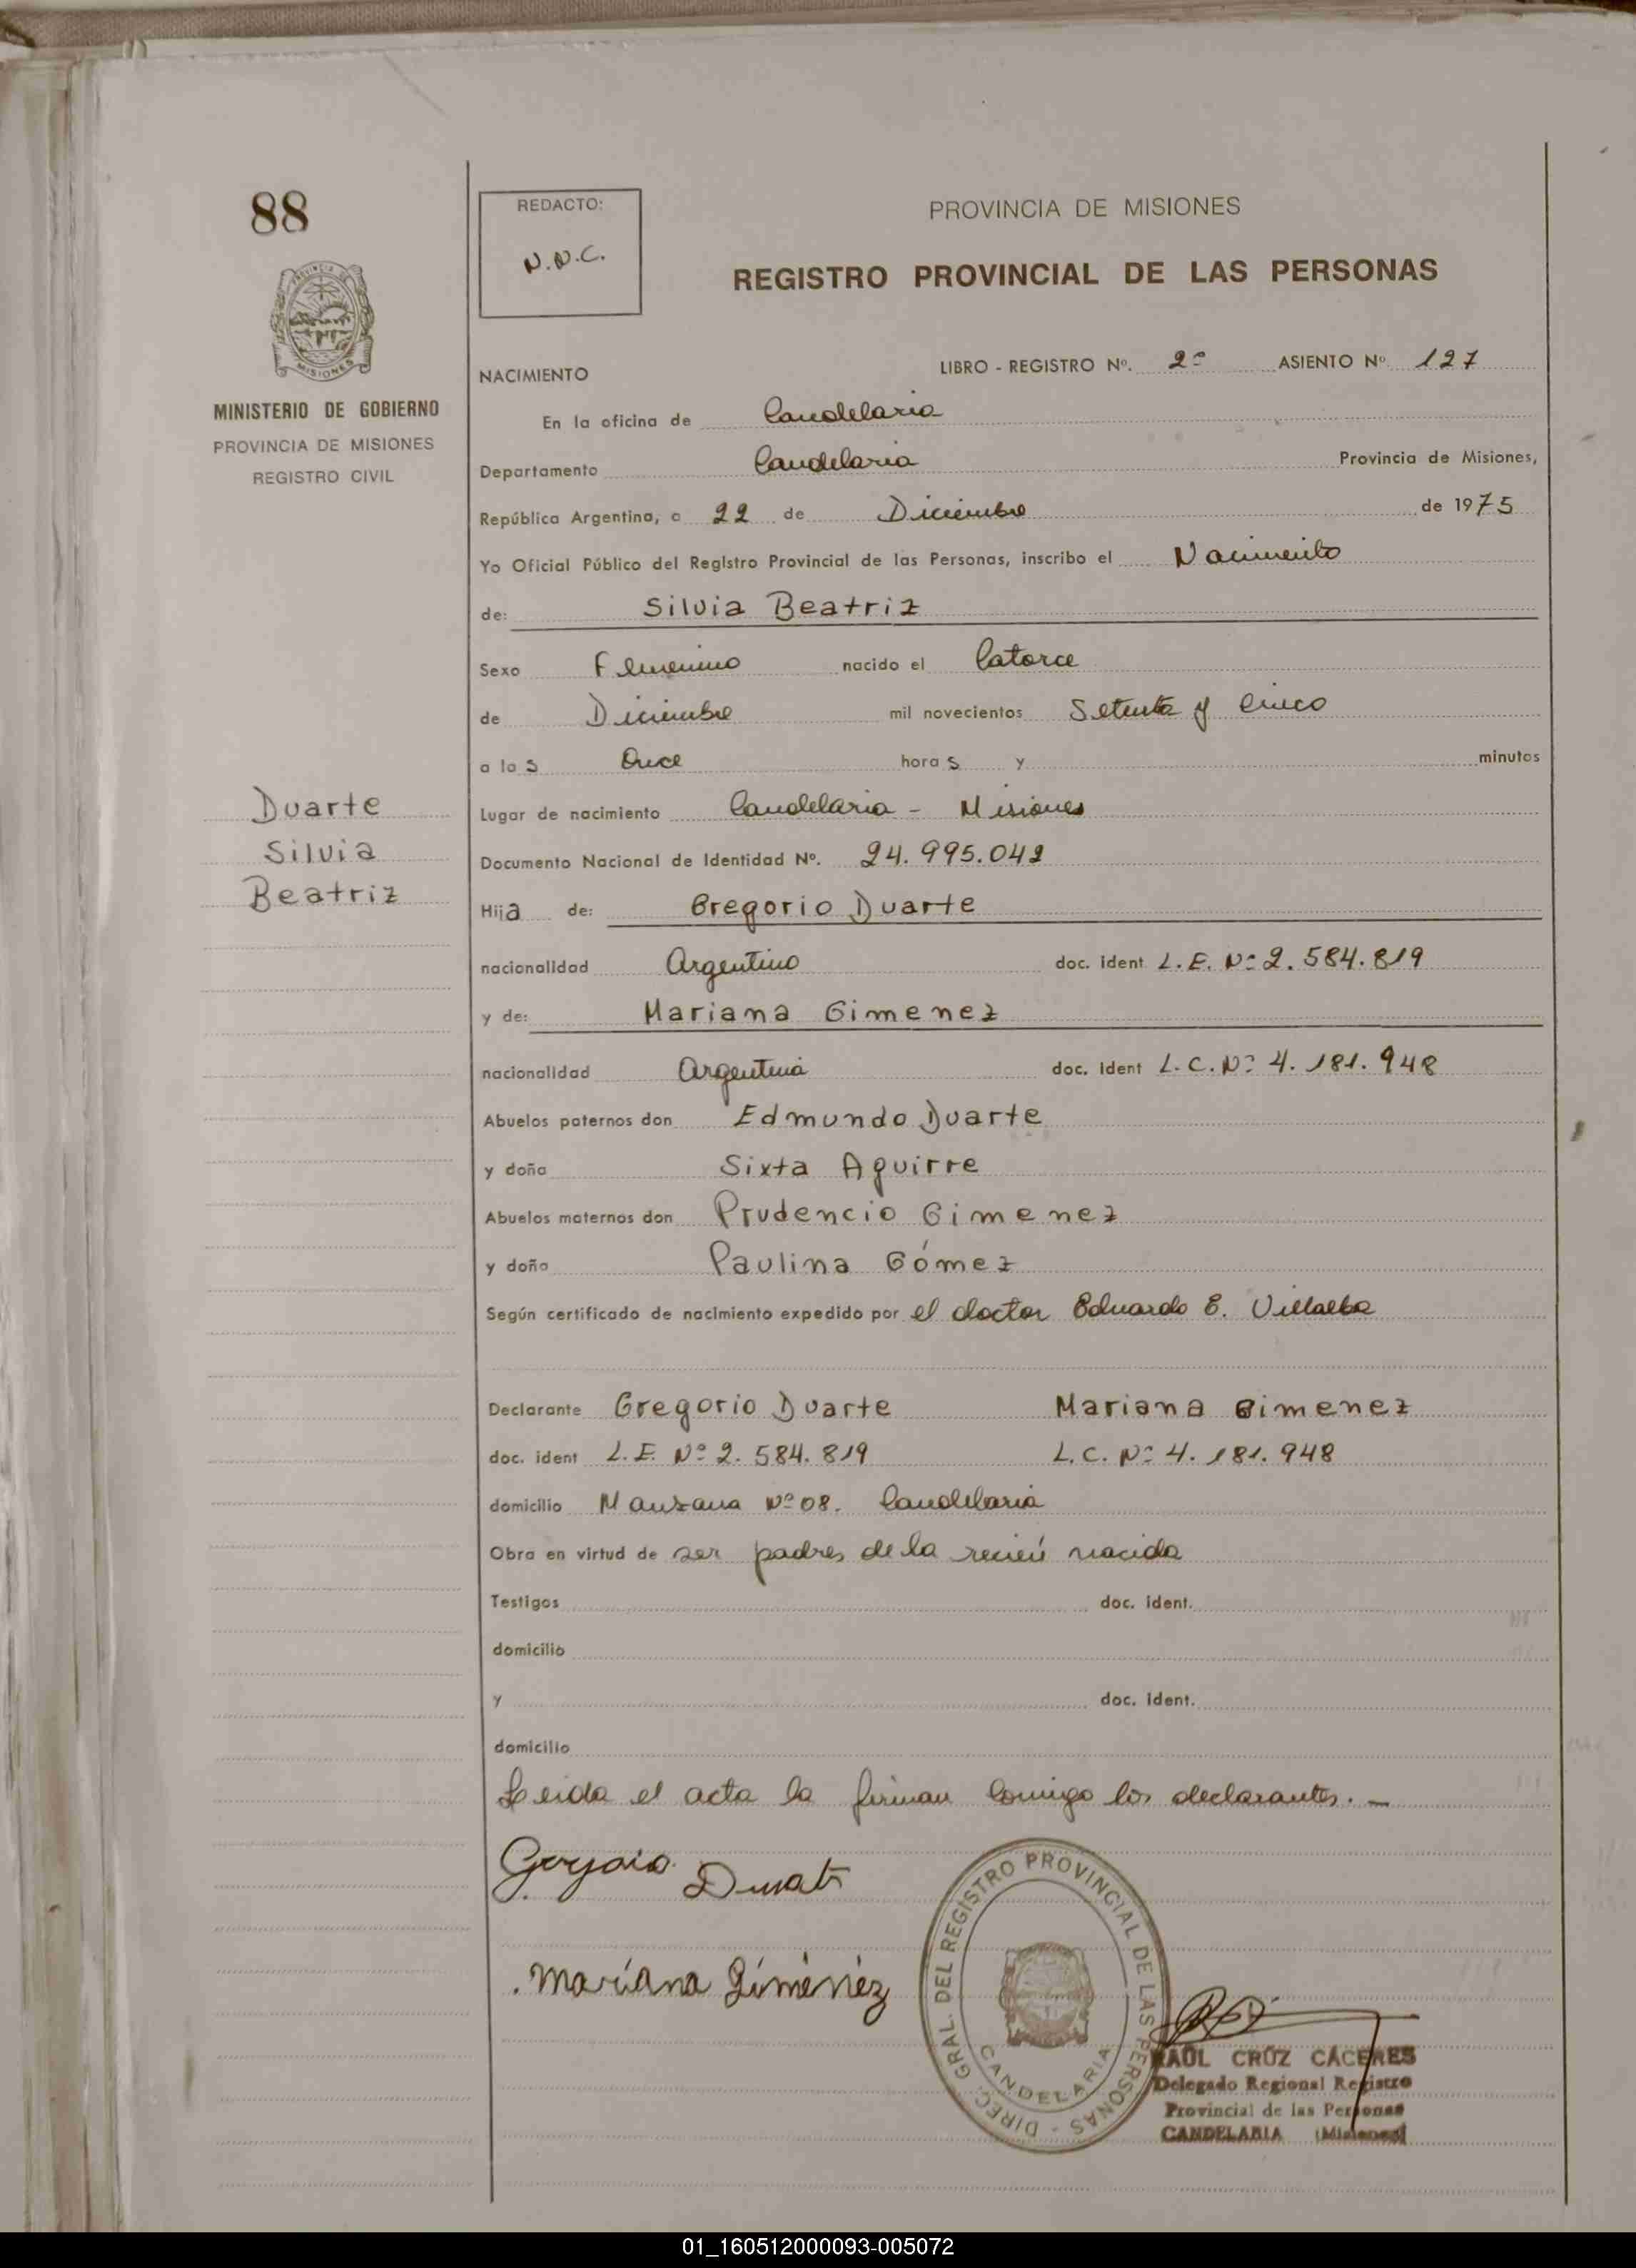 88
REDACTO:
N.N.C.
PROVINCIA DE MISIONES
REGISTRO PROVINCIAL DE LAS PERSONAS
PROVINCIA DE
MISIONES
MINISTERIO DE GOBIERNO
PROVINCIA DE MISIONES
REGISTRO CIVIL
NACIMIENTO LIBRO - REGISTRO Nº. 2º ASIENTO Nº 127
En la oficina de Candelaria
Departamento Candelaria Provincia de Misiones,
República Argentina, a 22 de Diciembre de 1975
Yo Oficial Público del Registro Provincial de las Personas, inscribo el Nacimiento
de: Silvia Beatriz
Sexo Femenino nacido el Catorce
de Diciembre mil novecientos Setenta y Cinco
a las Once horas y minutos
Duarte
Silvia
Beatriz
Lugar de nacimiento Candelaria - Misiones
Documento Nacional de Identidad Nº. 24.995.042
Hija de: Gregorio Duarte
nacionalidad Argentino doc. ident L.E. Nº 2.584.819
y de: Mariana Gimenez
nacionalidad Argentina doc. ident L.C. Nº 4.181.948
Abuelos paternos don Edmundo Duarte
y doña Sixta Aguirre
Abuelos maternos don Prudencio Gimenez
y doña Paulina Gómez
Según certificado de nacimiento expedido por el doctor Eduardo E. Villalba
Declarante Gregorio Duarte Mariana Gimenez
doc. ident L.E. Nº 2.584.819 L.C. Nº 4.181.948
domicilio Manzana Nº 08. Candelaria
Obra en virtud de ser padres de la recién nacida
Testigos doc. ident.
domicilio
y doc. ident.
domicilio
Leida el acta la firman Comigo los declarantes. -
Mariana Giménez
DIREC. GRAL. DEL REGISTRO PROVINCIAL DE LAS PERSONAS -
CANDELARIA
RAÚL CRÚZ CÁCERES
Delegado Regional Registro
Provincial de las Personas
CANDELARIA (Misiones)
01_160512000093-005072